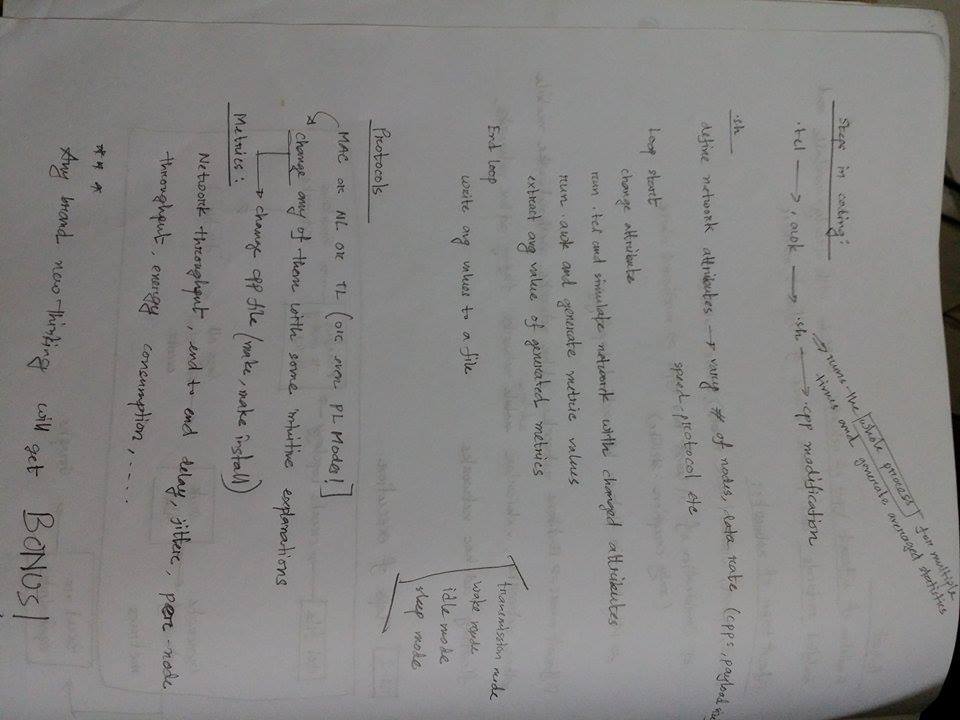 Steps in coding:
.tcl → .awk → .sh → .cpp modification
runs the whole process for multiple
times and generate averaged statistics
.sh
define network attributes → vary # of nodes, data rate (cpps, payload
speed, protocol etc
Loop start
change attribute
run .tcl and simulate network with changed attributes
run .awk and generate metric values
extract avg value of generated metrics
write avg values to a file
End loop
transmission mode
wake mode
idle mode
sleep mode
Protocols
MAC or NL or TL (or even PL Model!]
change any of them with some intuitive explanations
→ change cpp file (make, make install)
Metrics:
Network throughput, end to end delay, jitter, per-node
throughput, energy consumption, ....
***
Any brand new thinking will get BONUS!